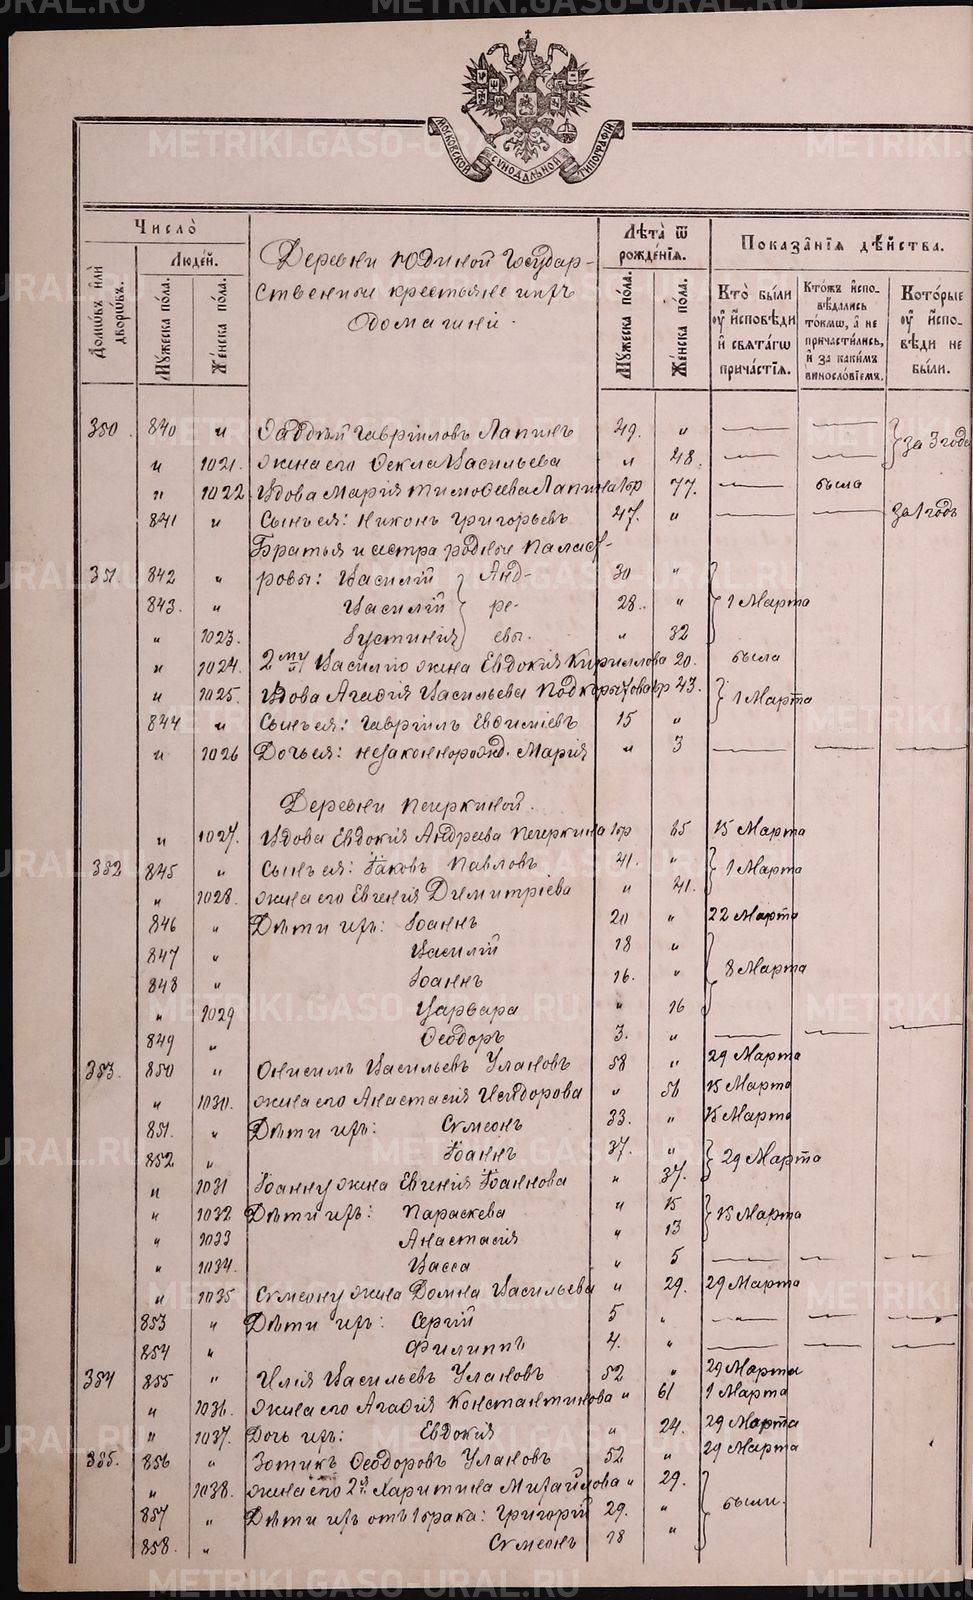 METRIKI.GASO-URAL.RU
МОСКОВСКОЙ СѴНОДАЛЬНОЙ ТИПОГРАФІИ
Число̀
Домѡ́въ и҆лѝ дворѡ́въ.
Люде́й.
Мꙋ́жеска по́ла.
Же́нска по́ла.
Деревни Юдиной Государ-
ственные крестьяне и ихъ
домашніи.
Лѣ̑та ѿ рожде́нїѧ.
Мꙋ́жеска по́ла.
Же́нска по́ла.
Показа̑нїѧ дѣ́йства.
Кто̀ бы́ли ᲂу҆ и҆сповѣ́ди и҆ свѧта́гѡ прича́стїѧ.
Кто́жъ и҆спо-
вѣ́дались то́кмѡ, а҆ не причасти́лись, и҆ за каки́мъ винослѡ́вїемъ.
Кото́рые ᲂу҆ и҆спо-
вѣ́ди не бы́ли.
350. 840 " Фаддей Гавріиловъ Лапинъ 49. " — — за 3 года
" 1021. жена его Фекла Васильева " 48. — —
" 1022 Вдова Марія Тимофеева Лапина 1 бр 77. — была
841 " Сынъ ея: Никонъ Григорьевъ 47. " — — за 1 годъ
Братья и сестра родные
351. 842 " ровы: Василій Анд- 30 " 1 Марта
843. " Василій ре- 28. "
" 1023. Іустинія евы. " 32
" 1024. 2му Василію жена Евдокія Кириллова 20. была
" 1025. Вдова Агафія Васильева Подкорытова 1 бр 43. 1 Марта
844 " Сынъ ея: Гавріилъ Евфиміевъ 15 "
" 1026 Дочь ея: незаконнорожд. Марія " 3 — — —
Деревни Пешкиной.
" 1027. Вдова Евдокія Андреева Пешкина 1 бр 65 15 Марта
352 845 " Сынъ ея: Іаковъ Павловъ 41. " 1 Марта
" 1028. жена его Евгенія Димитріева " 41.
846 " Дѣти ихъ: Іоаннъ 20 " 22 Марта
847 " Василій 18 " 8 Марта
848 " Іоаннъ 16. "
" 1029 Варвара " 16
849 " Ѳеодоръ 3. " — — —
353. 850 " Онисимъ Васильевъ Улановъ 58 " 29 Марта
" 1030. жена его Анастасія Исидорова " 56 15 Марта
851. " Дѣти ихъ: Симеонъ 33. " 15 Марта
852 " Іоаннъ 37. " 29 Марта
" 1031 Іоанну жена Евгенія Іоаннова " 37.
" 1032 Дѣти ихъ: Параскева " 15 15 Марта
" 1033 Анастасія " 13
" 1034. Васса " 5 — — —
" 1035 Симеону жена Домна Васильева " 29. 29 Марта
853 " Дѣти ихъ: Сергій 5 " — — —
854 " Филиппъ 4. " — — —
354 855 " Илія Васильевъ Улановъ 52 " 29 Марта
" 1036. жена его Агафія Константинова " 61 1 Марта
" 1037. Дочь ихъ: Евдокія " 24. 29 Марта
355. 856 " Зотикъ Ѳеодоровъ Улановъ 52 " 29 Марта
" 1038. жена его 2я Харитина Михайлова " 29. были.
857 " Дѣти ихъ отъ 1 брака: Григорій 29. "
858. " Симеонъ 18 "